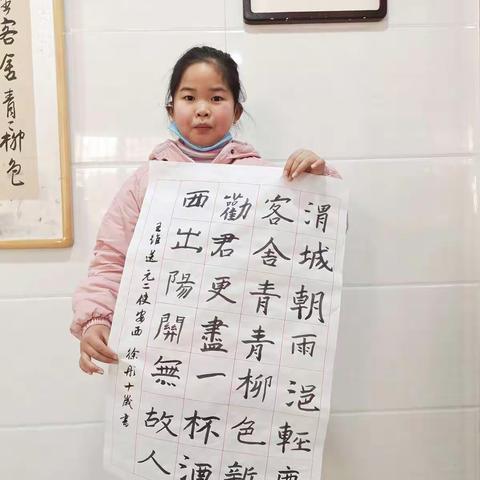 渭城朝雨浥輕
客舍青青柳色新
勸君更盡一杯酒
西出陽關無故人
王維送元二使安西 徐彤十歲書
客舍青々柳色